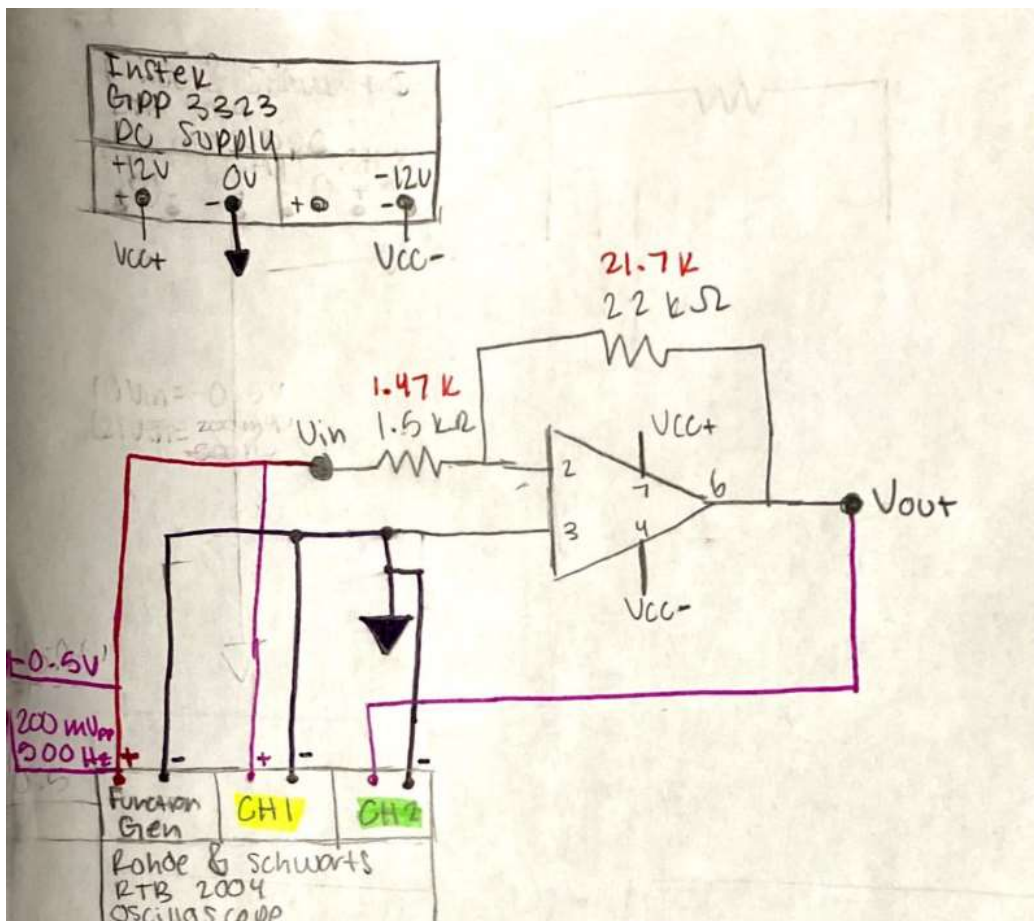 Instek
GPP 3323
DC Supply
+12V 0V -12V
+ - + -
VCC+ VCC-
21.7 K
22 kΩ
1.47 K
1.5 kΩ
Vin
VCC+
2
7
6
3
4
Vout
VCC-
-0.5V
200 mVpp
500 Hz
+ - + - -
Function
Gen
CH1
CH2
Rohde & Schwarts
RTB 2004
Oscilloscope